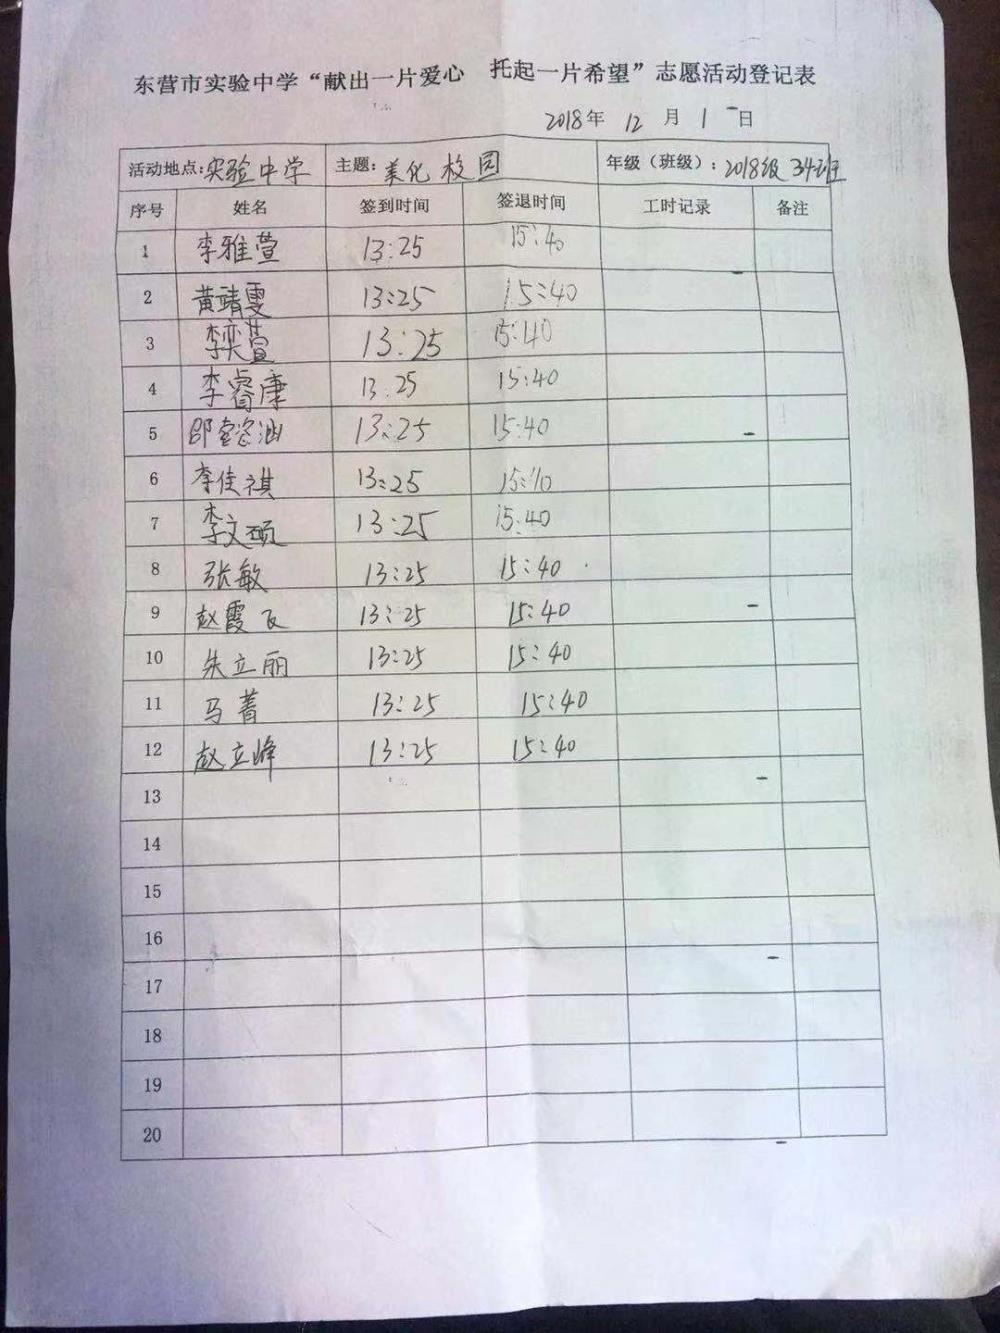 东营市实验中学“献出一片爱心 托起一片希望”志愿活动登记表
2018年 12 月 1 日
活动地点:实验中学 主题:美化校园 年级（班级）:2018级34班
序号 姓名 签到时间 签退时间 工时记录 备注
1 李雅萱 13:25 15:40
2 黄靖雯 13:25 15:40
3 李奕萱 13:25 15:40
4 李睿康 13:25 15:40
5 邵 涵 13:25 15:40
6 李佳祺 13:25 15:40
7 李文硕 13:25 15:40
8 张敏 13:25 15:40
9 赵霞飞 13:25 15:40
10 朱立丽 13:25 15:40
11 马菁 13:25 15:40
12 赵立峰 13:25 15:40
13
14
15
16
17
18
19
20